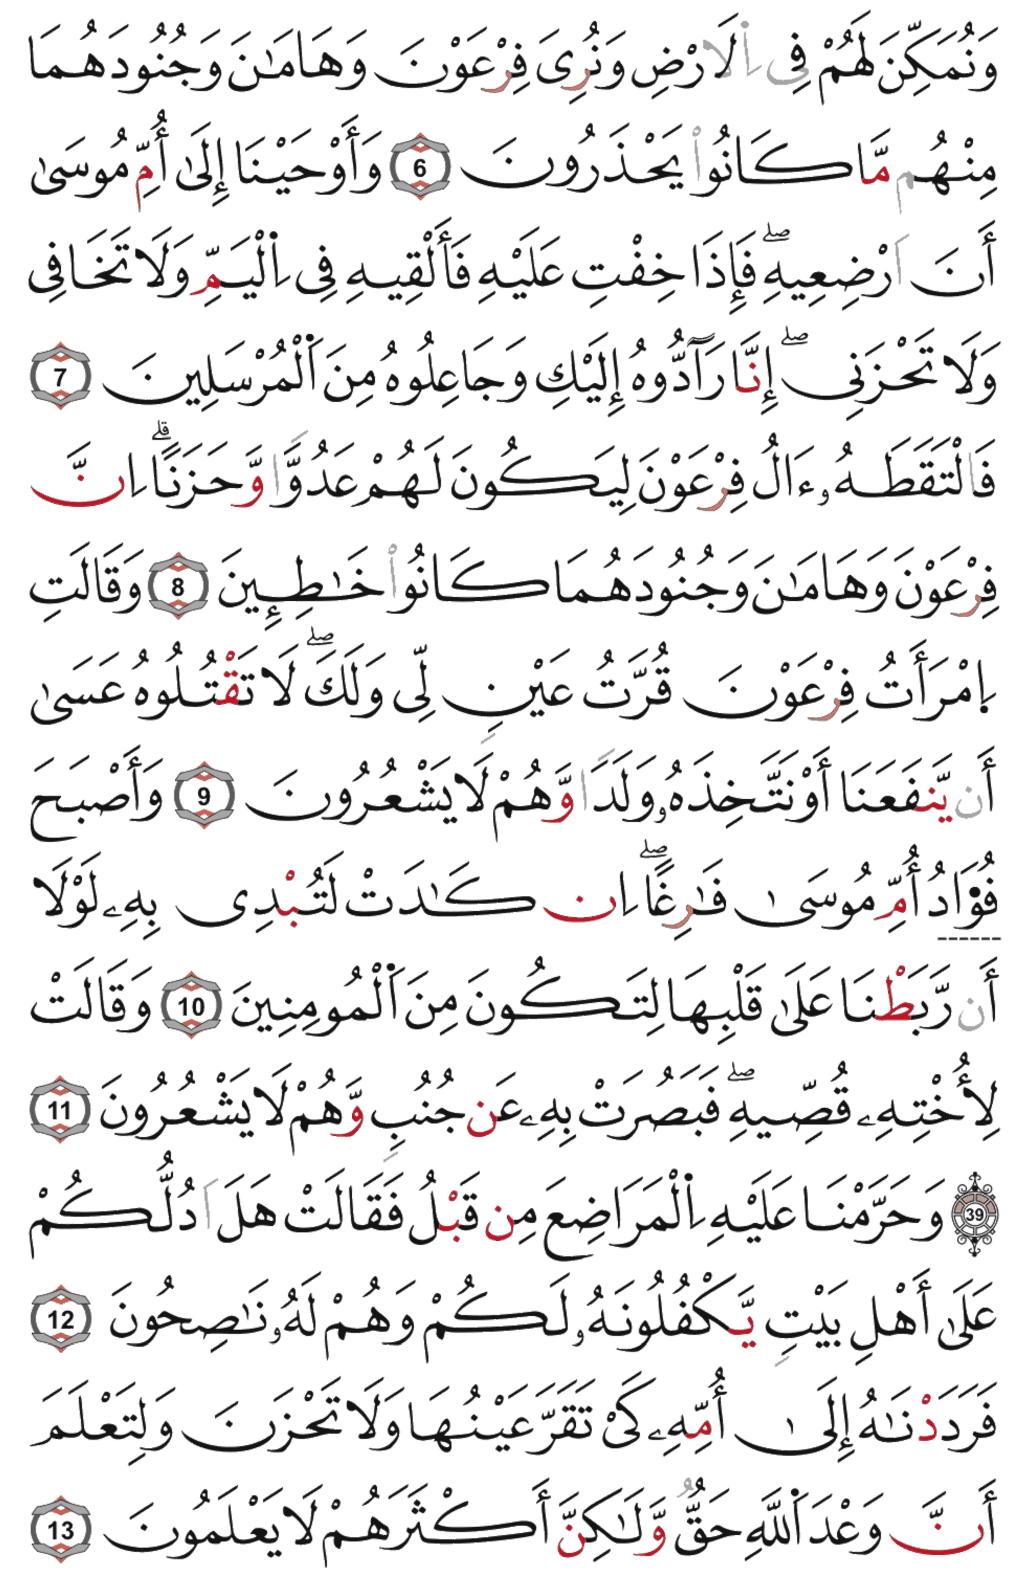 وَنُمَكِّنَ لَهُمْ فِي اِ۬لَارْضِ وَنُرِيَ فِرْعَوْنَ وَهَامَٰنَ وَجُنُودَهُمَا
مِنْهُم مَّا كَانُواْ يَحْذَرُونَ 6 وَأَوْحَيْنَا إِلَىٰ أُمِّ مُوسَىٰ
أَنَ اَرْضِعِيهِۖ فَإِذَا خِفْتِ عَلَيْهِ فَأَلْقِيهِ فِي اِ۬لْيَمِّ وَلَا تَخَافِي
وَلَا تَحْزَنِيۖ إِنَّا رَآدُّوهُ إِلَيْكِ وَجَاعِلُوهُ مِنَ اَ۬لْمُرْسَلِينَ 7
فَالْتَقَطَهُۥ ءَالُ فِرْعَوْنَ لِيَكُونَ لَهُمْ عَدُوّٗا وَّحَزَناًۗ اِنَّ
فِرْعَوْنَ وَهَامَٰنَ وَجُنُودَهُمَا كَانُواْ خَٰطِـِٕينَ 8 وَقَالَتِ
اِ۪مْرَأَتُ فِرْعَوْنَ قُرَّتُ عَيْنٖ لِّي وَلَكَۖ لَا تَقْتُلُوهُ عَسَىٰ
أَنْ يَّنفَعَنَا أَوْ نَتَّخِذَهُۥ وَلَدٗا وَّهُمْ لَا يَشْعُرُونَ 9 وَأَصْبَحَ
فُؤَادُ أُمِّ مُوسَىٰ فَٰرِغاًۖ اِن كَٰدَتْ لَتُبْدِي بِهِۦ لَوْلَا
أَن رَّبَطْنَا عَلَىٰ قَلْبِهَا لِتَكُونَ مِنَ اَ۬لْمُومِنِينَ 10 وَقَالَتْ
لِأُخْتِهِۦ قُصِّيهِۖ فَبَصُرَتْ بِهِۦ عَن جُنُبٖ وَّهُمْ لَا يَشْعُرُونَ 11
39 وَحَرَّمْنَا عَلَيْهِ اِ۬لْمَرَاضِعَ مِن قَبْلُ فَقَالَتْ هَلَ اَدُلُّكُمْ
عَلَىٰ أَهْلِ بَيْتٖ يَّكْفُلُونَهُۥ لَكُمْ وَهُمْ لَهُۥ نَٰصِحُونَ 12
فَرَدَدْنَٰهُ إِلَىٰ أُمِّهِۦ كَيْ تَقَرَّ عَيْنُهَا وَلَا تَحْزَنَ وَلِتَعْلَمَ
أَنَّ وَعْدَ اَ۬للَّهِ حَقّٞ وَّلَٰكِنَّ أَكْثَرَهُمْ لَا يَعْلَمُونَ 13